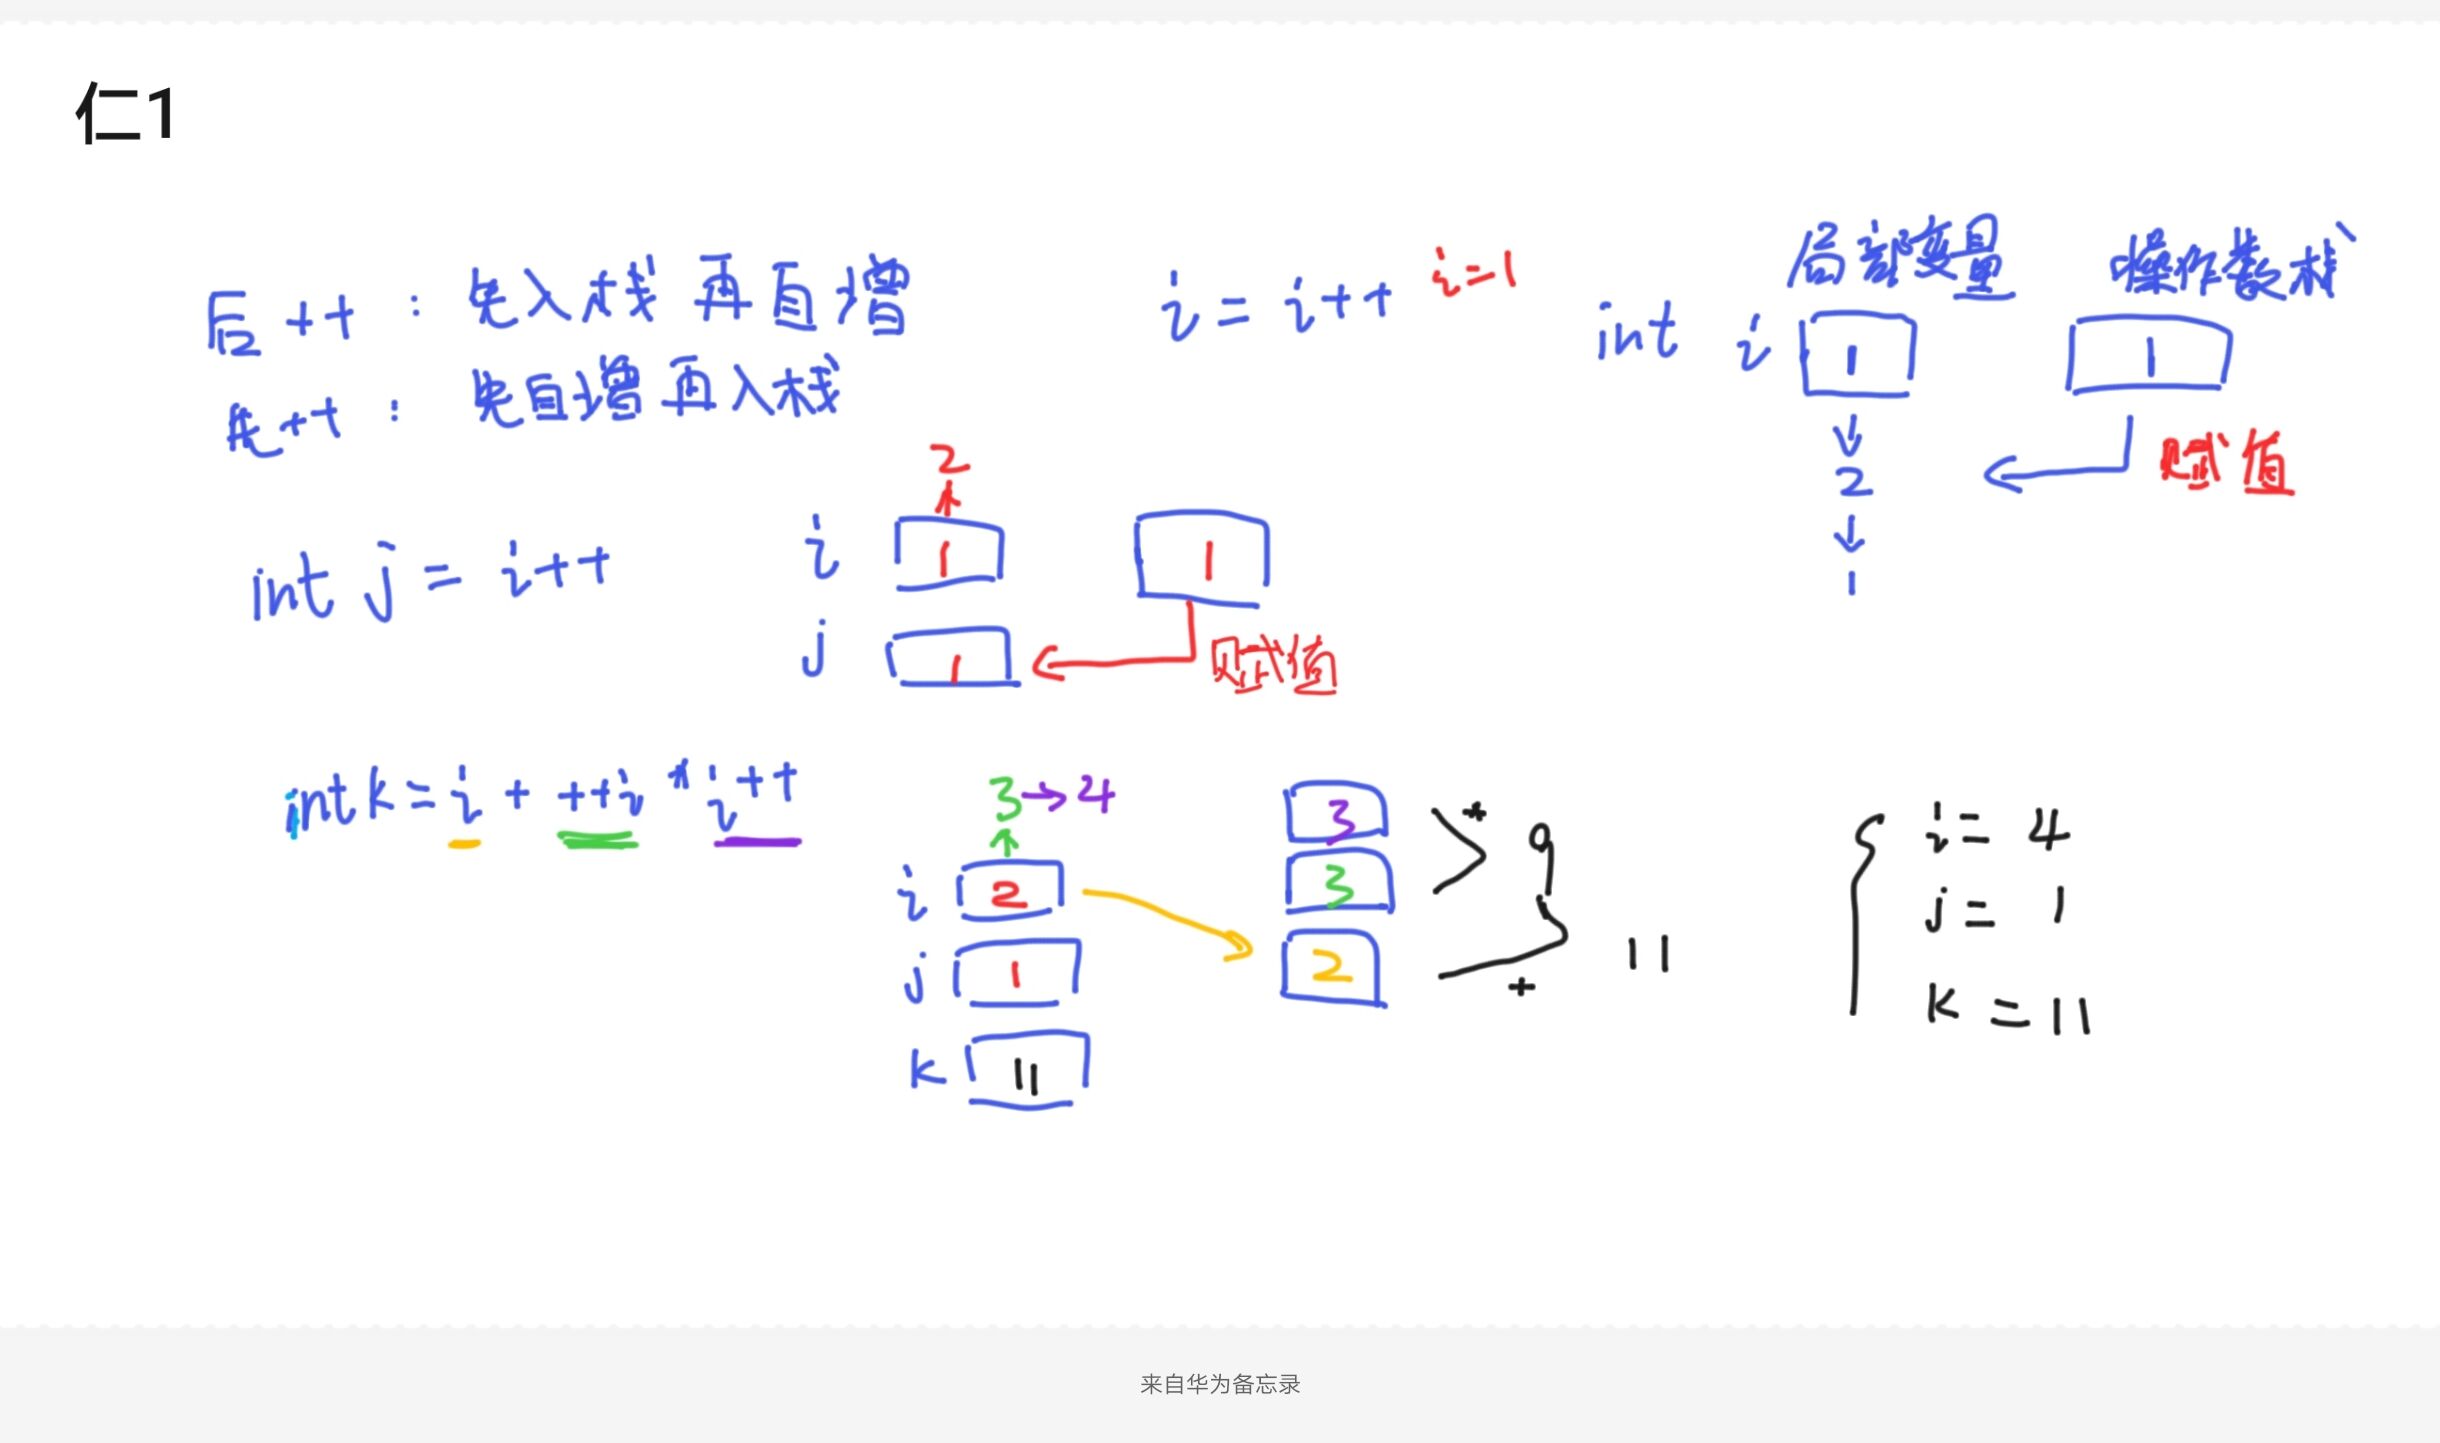 仁1
后++ : 先入栈 再自增
先++ : 先自增再入栈
i = i++ i=1
局部变量 操作数栈
int i 1 1
2
赋值
1
int j = i++
2
i 1 1
j 1 赋值
int k = i + ++i * i++
3→4
i 2
j 1
k 11
3
3
2
* 9
+ 11
i = 4
j = 1
k = 11
来自华为备忘录